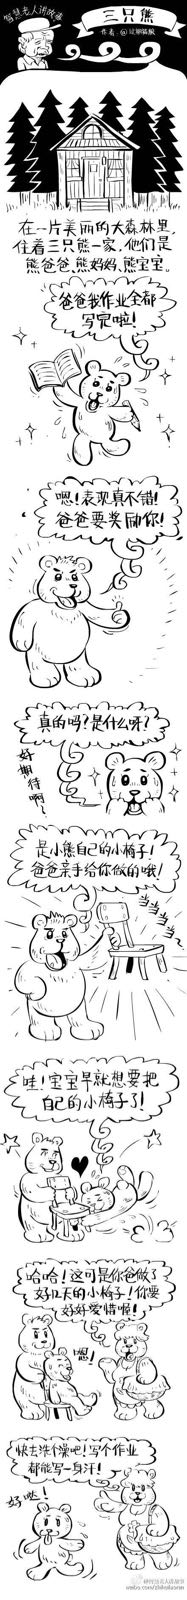 智慧老人讲故事
三只熊
作者：@过期猫骸
在一片美丽的大森林里，
住着三只熊一家，他们是
熊爸爸、熊妈妈、熊宝宝。
爸爸我作业全都
写完啦！
嗯！表现真不错！
爸爸要奖励你！
真的吗？是什么呀？
好期待啊！
是小熊自己的小椅子！
爸爸亲手给你做的哦！
当当当当
哇！宝宝早就想要把
自己的小椅子了！
哈哈！这可是你爸做了
好几天的小椅子！你要
好好爱惜喔！
嗯！
快去洗个澡吧！写个作业
都能写一身汗！
好哒！